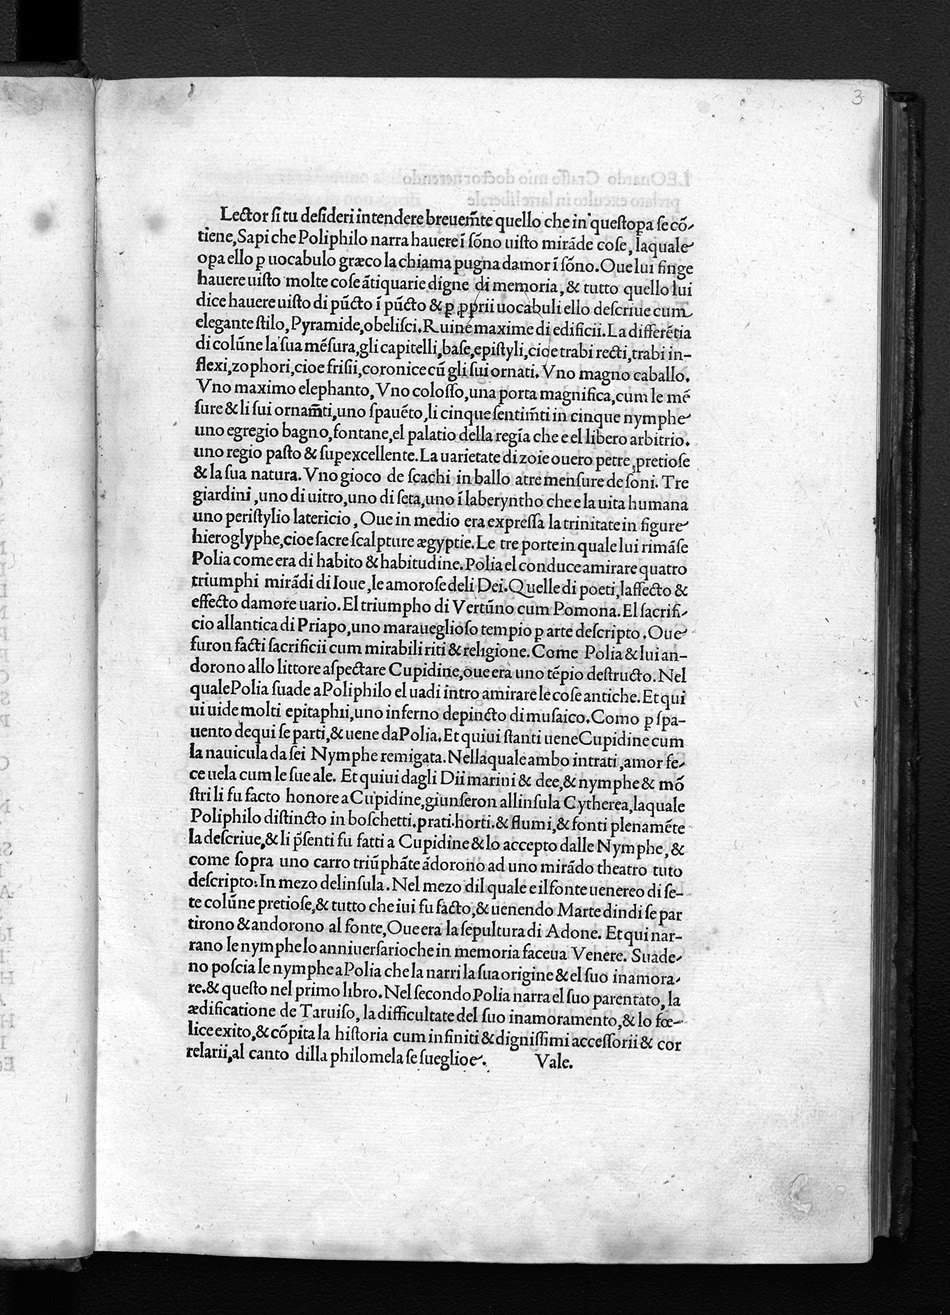 3
Lector si tu desideri intendere breuem̃te quello che in questopa se cõ-
tiene, Sapi che Poliphilo narra hauere ĩ sõno uisto mirãde cose, laquale
opa ello ꝑ uocabulo græco la chiama pugna damor ĩ sõno. Oue lui finge
hauere uisto molte cose ãtiquarie digne di memoria, & tutto quello lui
dice hauere uisto di pũcto ĩ pũcto & ꝑ ꝓprii uocabuli ello descriue cum
elegante stilo, Pyramide, obelisci. Ruine maxime di edificii. La differẽtia
di colũne la sua mẽsura, gli capitelli, base, epistyli, cioe trabi recti, trabi in-
flexi, zophori, cioe frisii, coronice cũ gli sui ornati. Vno magno caballo.
Vno maximo elephanto, Vno colosso, una porta magnifica, cum le mẽ
sure & li sui ornam̃ti, uno spauẽto, li cinque sentim̃ti in cinque nymphe
uno egregio bagno, fontane, el palatio della regia che e el libero arbitrio.
uno regio pasto & supexcellente. La uarietate di zoie ouero petre, pretiose
& la sua natura. Vno gioco de scachi in ballo atre mensure de soni. Tre
giardini, uno di uitro, uno di seta, uno ĩ laberyntho che e la uita humana
uno peristylio latericio, Oue in medio era expressa la trinitate in figure
hieroglyphe, cioe sacre scalpture ægyptie. Le tre porte in quale lui rimãse
Polia come era di habito & habitudine. Polia el conduce amirare quatro
triumphi mirãdi di Ioue, le amorose deli Dei. Quelle di poeti, laffecto &
effecto damore uario. El triumpho di Vertũno cum Pomona. El sacrifi-
cio allantica di Priapo, uno maraueglioso tempio ꝑ arte descripto. Oue
furon facti sacrificii cum mirabili riti & religione. Come Polia & lui an-
dorono allo littore aspectare Cupidine, oue era uno tẽpio destructo. Nel
quale Polia suade a Poliphilo el uadi intro amirare le cose antiche. Et qui
ui uide molti epitaphii, uno inferno depincto di musaico. Como ꝑ spa-
uento de qui se parti, & uene da Polia. Et quiui stanti uene Cupidine cum
la nauicula da sei Nymphe remigata. Nella quale ambo intrati, amor fe-
ce uela cum le sue ale. Et quiui dagli Dii marini & dee, & nymphe & mõ
stri li fu facto honore a Cupidine, giunseron allinsula Cytherea, laquale
Poliphilo distincto in boschetti. prati. horti. & flumi, & fonti plenamẽte
la descriue, & li p̃senti fu fatti a Cupidine & lo accepto dalle Nymphe, &
come sopra uno carro triũphãte ãdorono ad uno mirãdo theatro tuto
descripto: In mezo delinsula. Nel mezo dil quale e il fonte uenereo di se-
te colũne pretiose, & tutto che iui fu facto, & uenendo Marte dindi se par
tirono & andorono al fonte, Oue era la sepultura di Adone. Et qui nar-
rano le nymphe lo anniuersario che in memoria faceua Venere. Suade-
no poscia le nymphe a Polia che la narri la sua origine & el suo inamora-
re. & questo nel primo libro. Nel secondo Polia narra el suo parentato, la
ædificatione de Taruiso, la difficultate del suo inamoramento, & lo fœ-
lice exito, & cõpita la historia cum infiniti & dignissimi accessorii & cor
relarii, al canto dilla philomela se sueglioe. Vale.